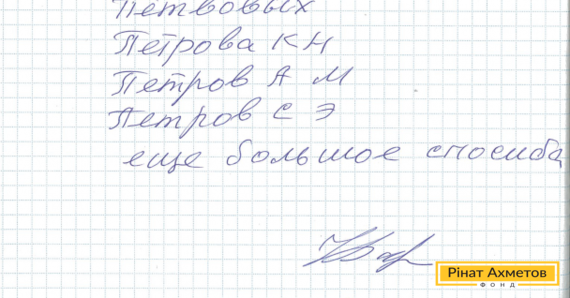 Петвовых
Петрова К Н
Петров А М
Петров С Э
еще большое спосиба
Рінат Ахметов
ФОНД